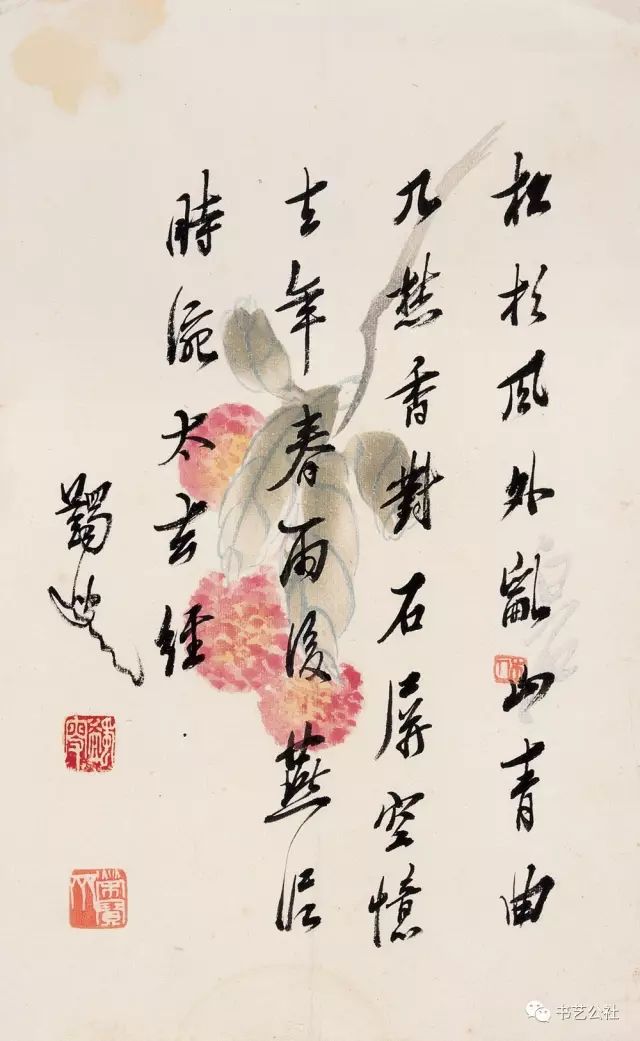 松杉風外亂山青曲
几焚香對石屏空憶
去年春雨後燕泥
時涴太玄經
蠲叟
白石
书艺公社